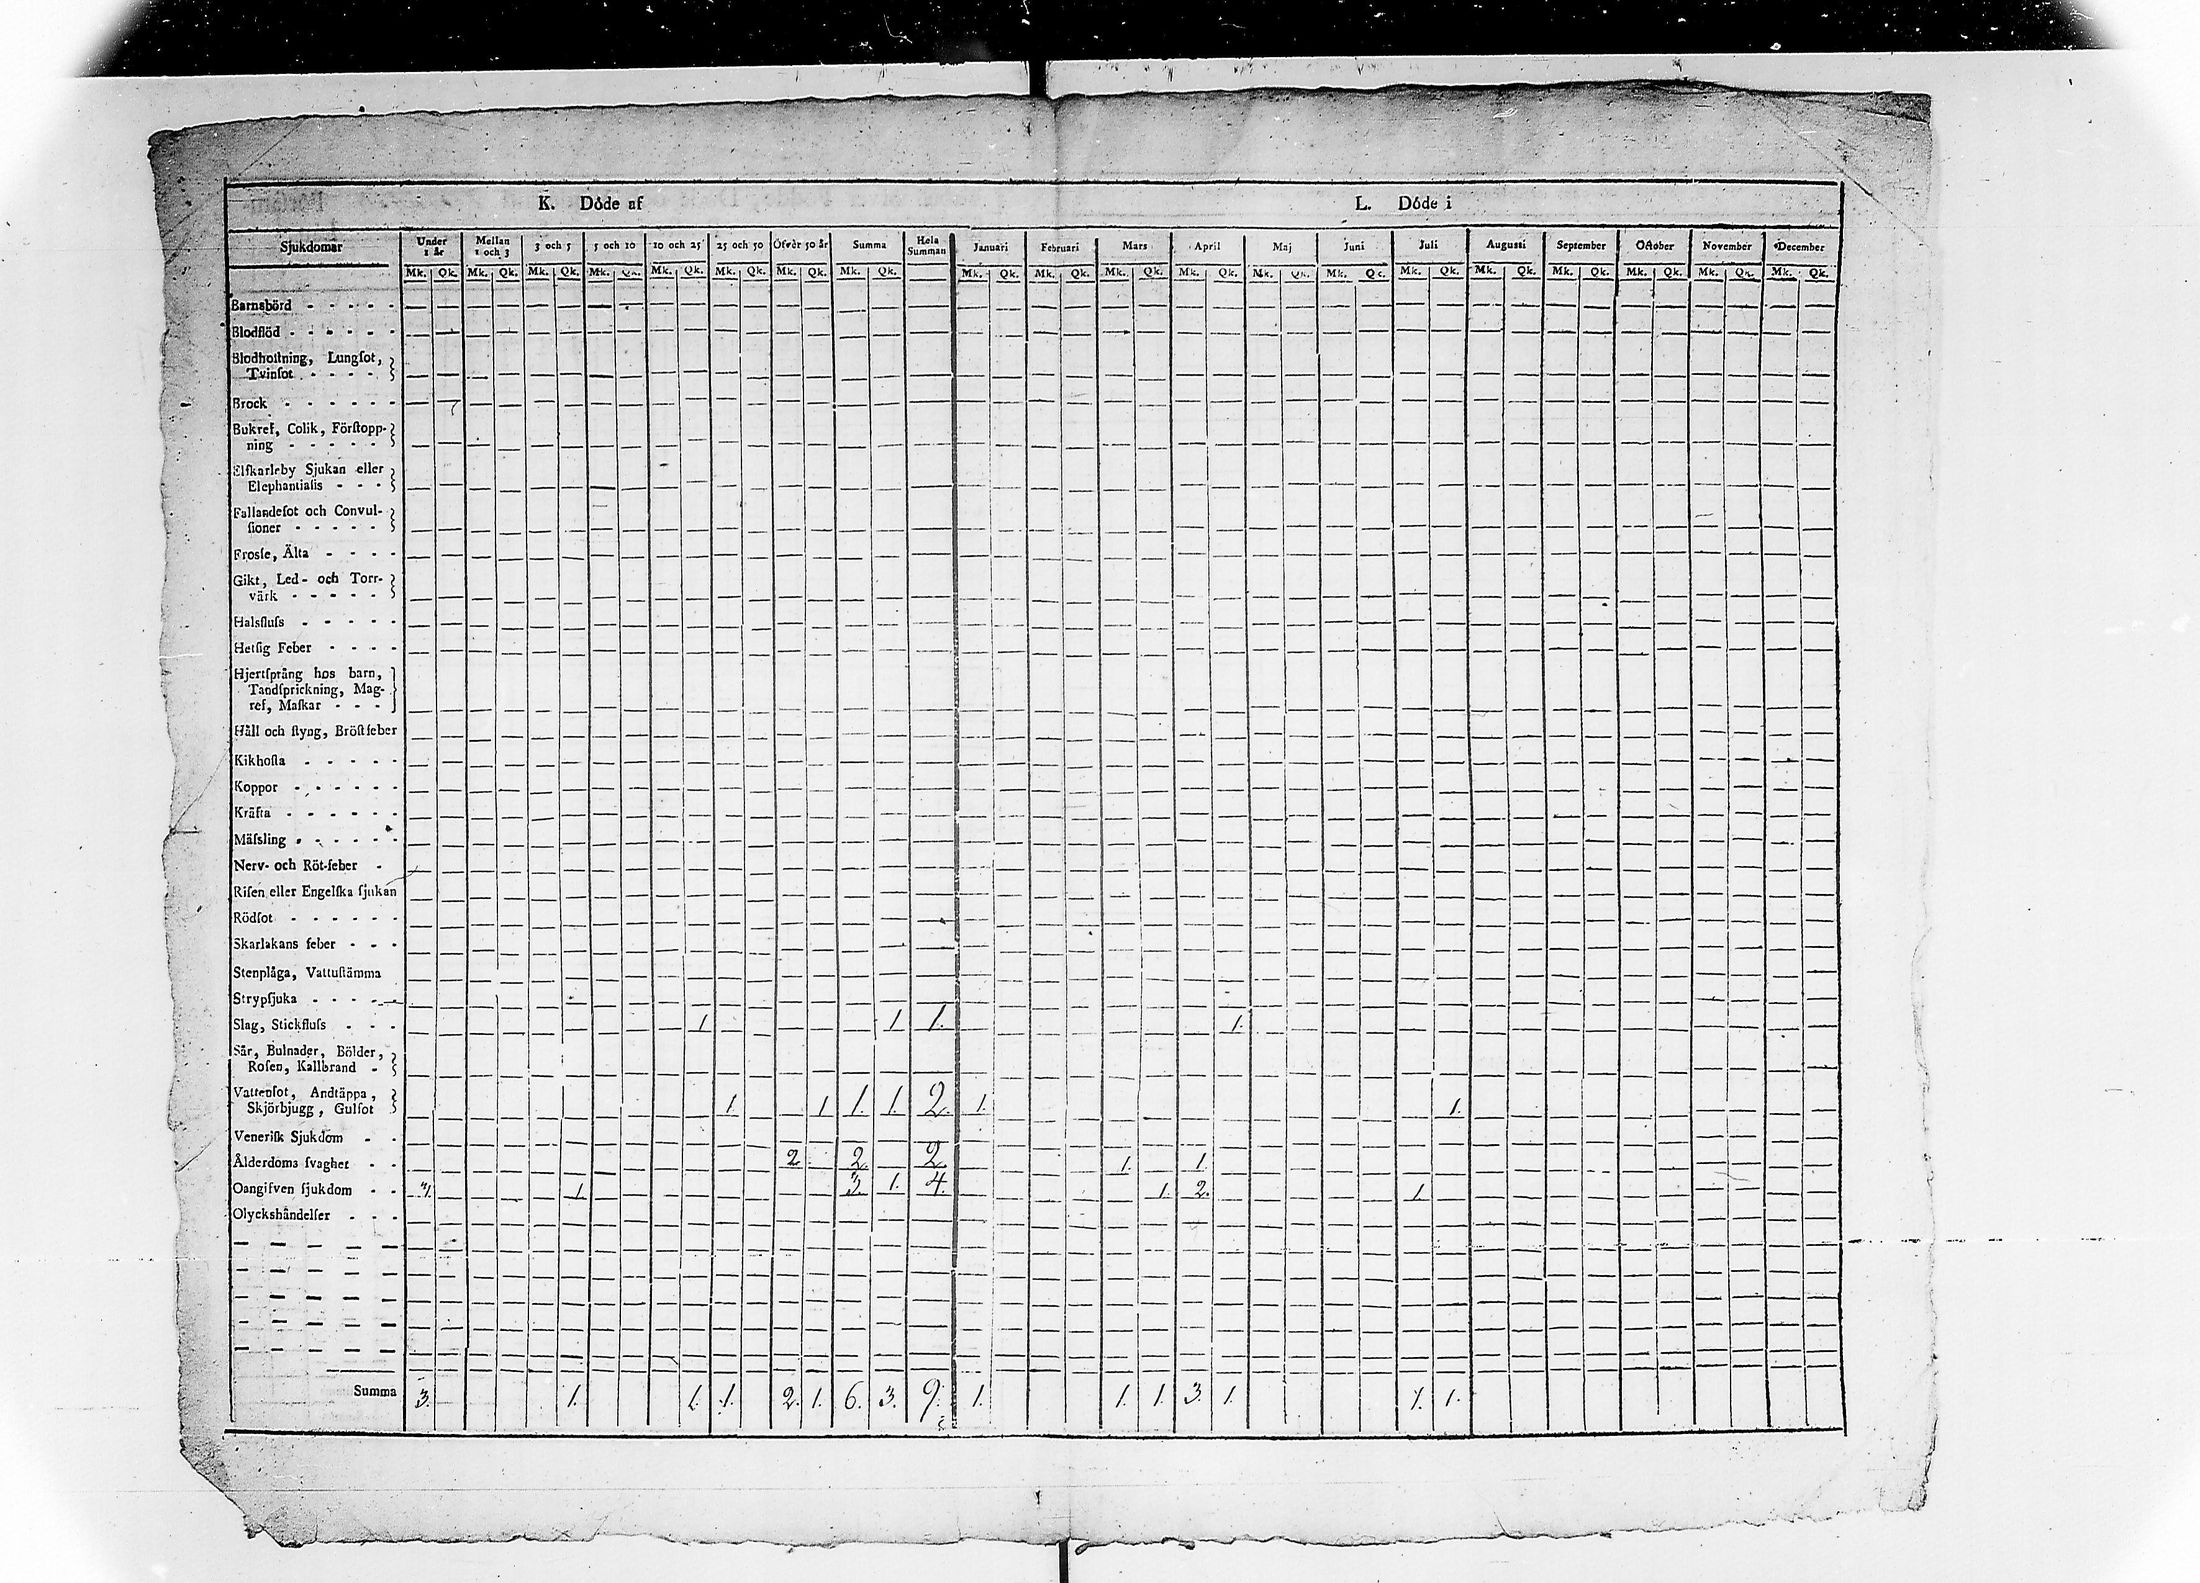 K. Döde af
L. Döde i
Sjukdomar Under 1 år Mellan 1 och 3 3 och 5 5 och 10 10 och 25 25 och 50 Öfver 50 år Summa Hela Summan Januari Februari Mars April Maj Juni Juli Augusti September October November December
Mk. Qk. Mk. Qk. Mk. Qk. Mk. Qk. Mk. Qk. Mk. Qk. Mk. Qk. Mk. Qk. Mk. Qk. Mk. Qk. Mk. Qk. Mk. Qk. Mk. Qk. Mk. Qk. Mk. Qk. Mk. Qk. Mk. Qk. Mk. Qk. Mk. Qk. Mk. Qk.
Barnsbörd - - - - -
Blodflöd - - - - - -
Blodhoſtning, Lungſot,
Tvinſot - - - -
Brock - - - - - -
Bukref, Colik, Förſtopp-
ning - - - - -
Elfkarleby Sjukan eller
Elephantiaſis - - -
Fallandeſot och Convul-
ſioner - - - - -
Froſſe, Älta - - - -
Gikt, Led- och Torr-
värk - - - - -
Halsfluſs - - - - -
Hetſig Feber - - - -
Hjertſprång hos barn,
Tandſprickning, Mag-
ref, Maſkar - - -
Håll och ſtyng, Bröſtfeber
Kikhoſta - - - - -
Koppor - - - - - -
Kräfta - - - - - -
Mäſsling - - - - - -
Nerv- och Röt-feber -
Riſen eller Engelſka ſjukan
Rödſot - - - - - -
Skarlakans feber - - -
Stenplåga, Vattuſtämma
Strypſjuka - - - - -
Slag, Stickfluſs - - - 1 1 1. 1.
Sår, Bulnader, Bölder,
Roſen, Kallbrand -
Vattenſot, Andtäppa,
Skjörbjugg, Gulſot 1. 1 1. 1. 2. 1. 1.
Veneriſk Sjukdom - -
Ålderdoms ſvaghet - - 2 2. 2. 1. 1.
Oangifven ſjukdom - - 3. 1. 3. 1. 4. 1. 2. 1.
Olyckshändelſer - - -
Summa 3. 1. 1. 1. 2. 1. 6. 3. 9. 1. 1. 1. 3. 1. 1. 1.